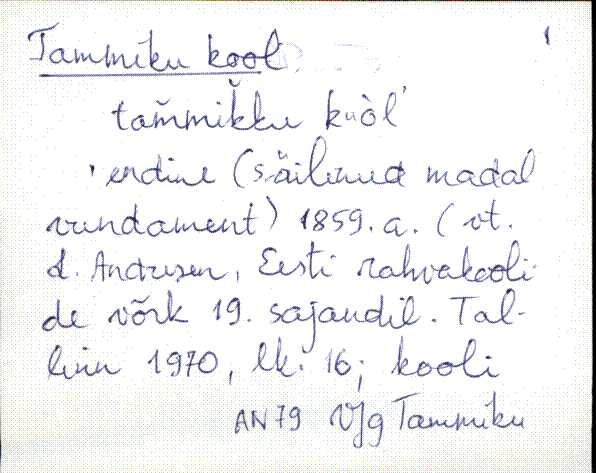 Tammiku kool 1
tam̆mik̆ku kuòl'
' endine (säilinud madal
vundament) 1859. a. (vt.
L. Andresen, Eesti rahvakooli-
de võrk 19. sajandil. Tal-
linn 1970, lk. 16; kooli
AN79 VJg Tammiku